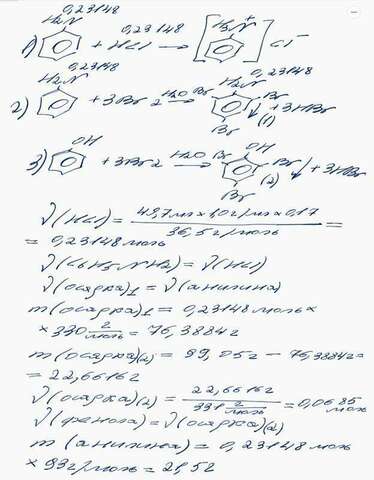 0,23148 0,23148
1) H2N + HCl → [H3N+] Cl−
0,23148 0,23148
2) H2N + 3Br2 H2O → H2N Br Br Br ↓ (1) + 3HBr
3) OH + 3Br2 H2O → OH Br Br Br (2) ↓ + 3HBr
ν(HCl) = 49,7мл × 1,0 г/мл × 0,17 / 36,5 г/моль =
= 0,23148 моль
ν(C6H5NH2) = ν(HCl)
ν(осадка)1 = ν(анилина)
m(осадка)1 = 0,23148 моль ×
× 330 г/моль = 76,3884 г
m(осадка)(2) = 99,05 г − 76,3884 г =
= 22,6616 г
ν(осадка)(2) = 22,6616 г / 331 г/моль = 0,0685 моль
ν(фенола) = ν(осадка)(2)
m (анилина) = 0,23148 моль
× 93 г/моль = 21,5 г